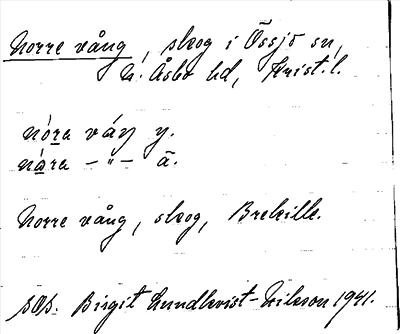 Norre vång, skog i Össjö sn,
N. Åsbo hd, Krist. l.
nòra váŋ y.
nàra – " – ä.
Norre vång, skog, Brekille.
SOS. Birgit Lundkvist-Nilsson 1941.